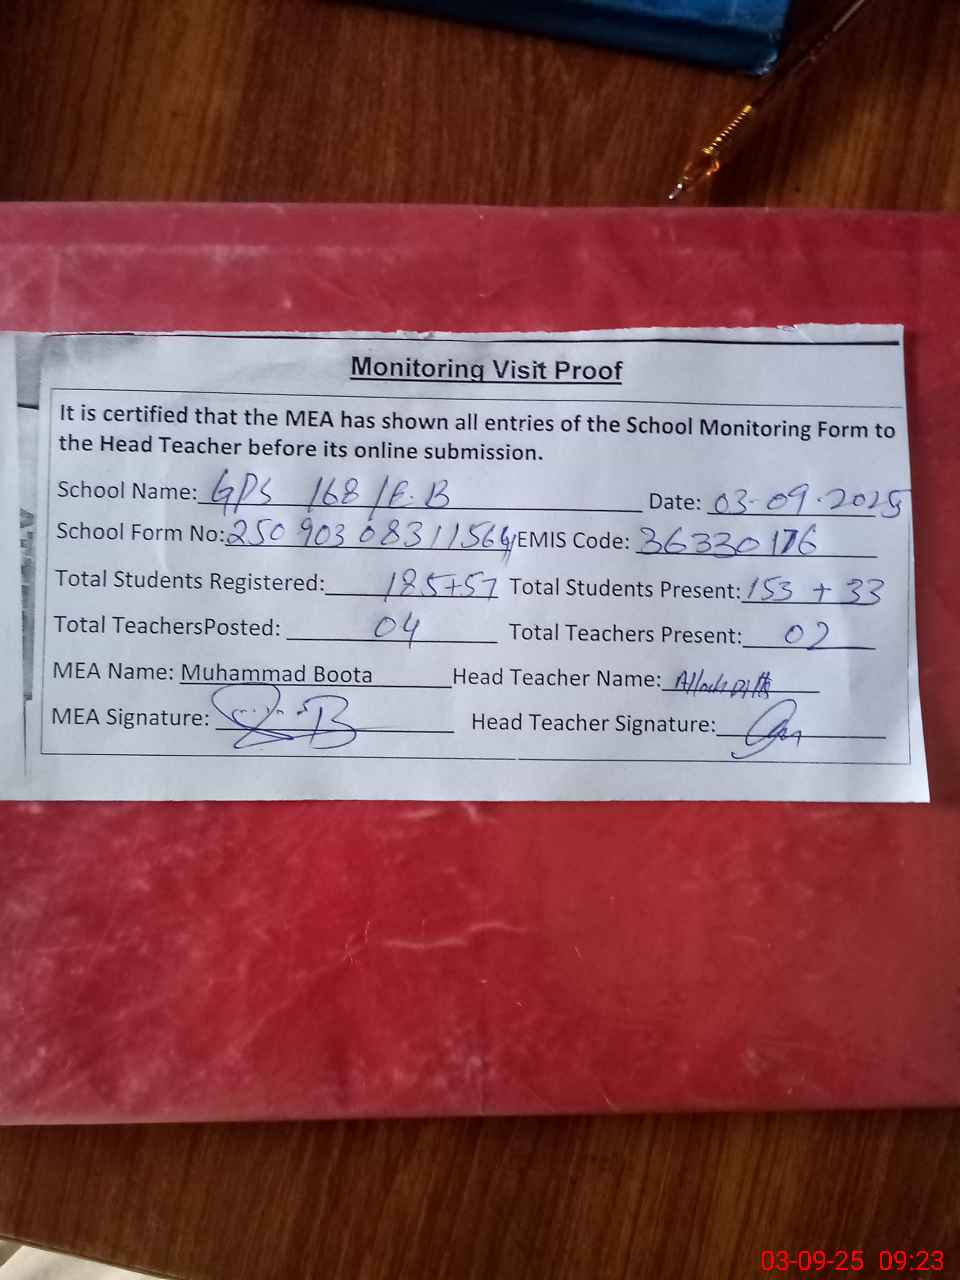 Monitoring Visit Proof
It is certified that the MEA has shown all entries of the School Monitoring Form to
the Head Teacher before its online submission.
School Name: GPS 168/E.B Date: 03-09.2025
School Form No: 25090308311564 EMIS Code: 36330176
Total Students Registered: 185+57 Total Students Present: 153 + 33
Total TeachersPosted: 04 Total Teachers Present: 02
MEA Name: Muhammad Boota Head Teacher Name: Allah Ditta
MEA Signature: Head Teacher Signature:
03-09-25 09:23